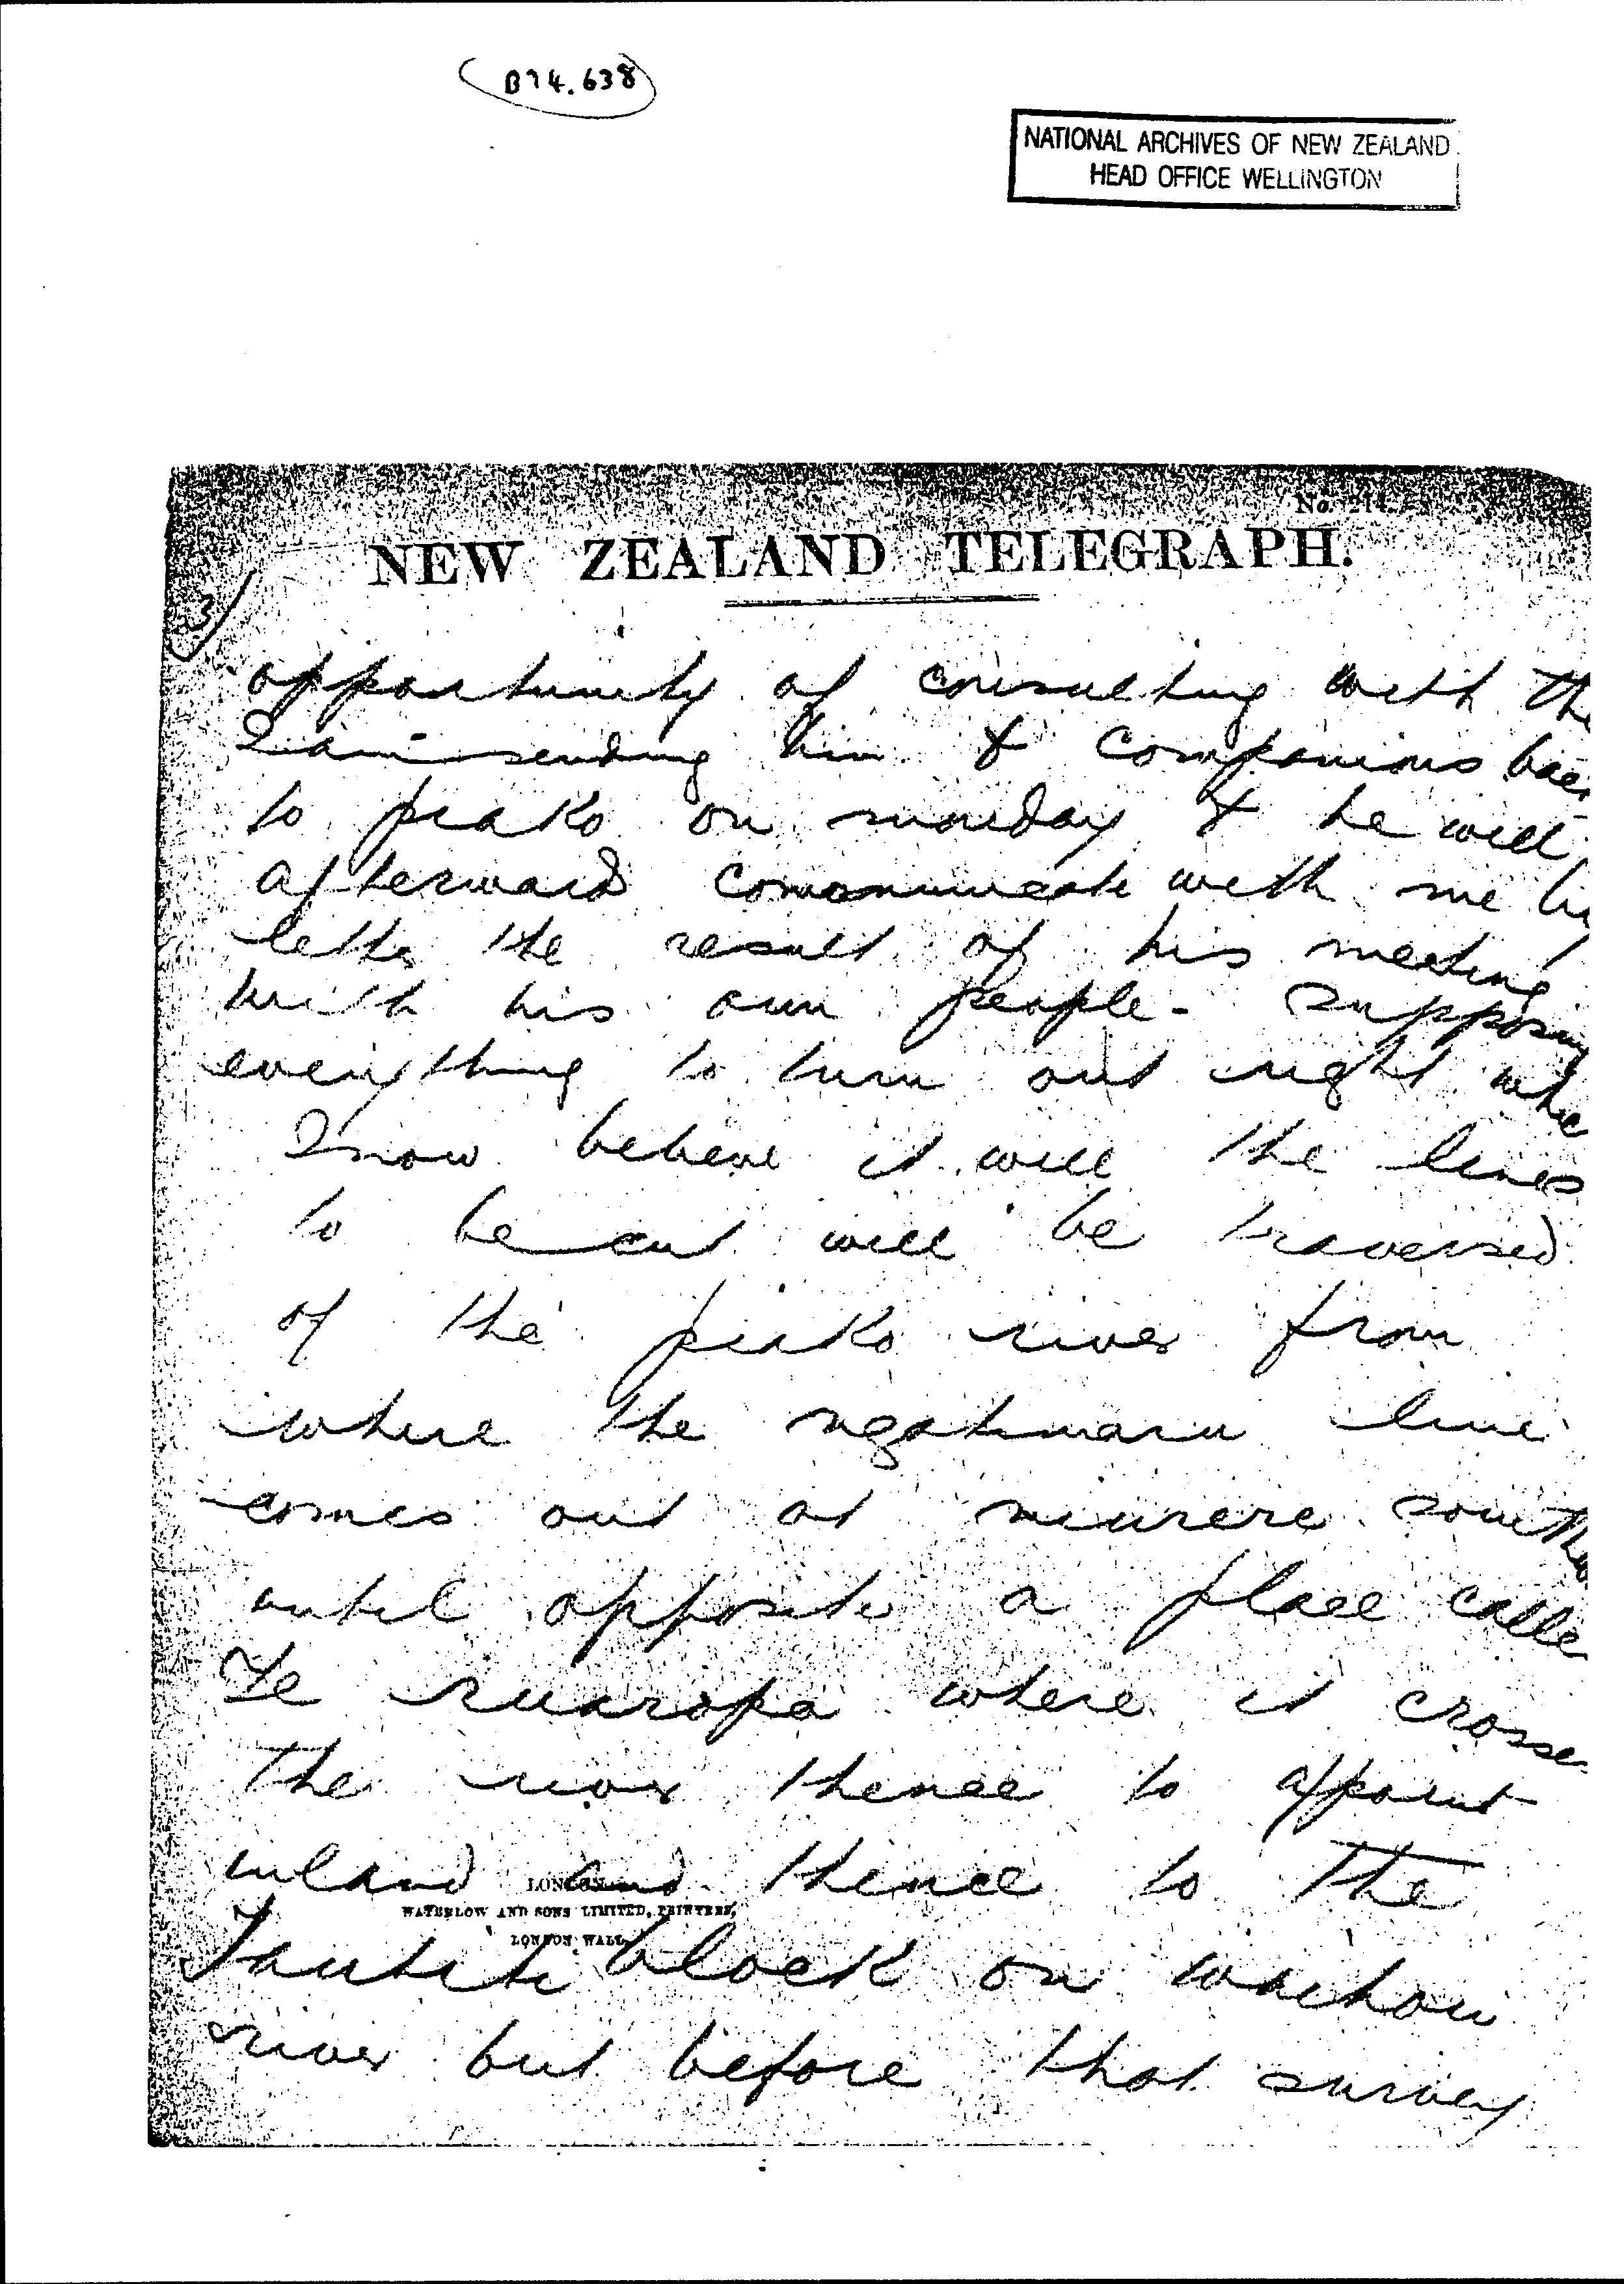 B74.638
NATIONAL ARCHIVES OF NEW ZEALAND
HEAD OFFICE WELLINGTON
No.
NEW ZEALAND TELEGRAPH.
3/
opportunity of consulting with the
I am sending him & companions bac
to piako on monday & he will
afterward communicate with me by
letter the result of his meeting
with his own people - supposing
everything to turn out right whic
I now believe it will the lines
to be cut will be traversed
of the piako river from
where the ngatimaru line
comes out at south
until opposite a place calle
Te ruaropa where it crosse
the river thence to apoint
inland and thence to the
block on waihou
river but before that survey
LONDON
WATERLOW AND SONS LIMITED, PRINTERS,
LONDON WALL